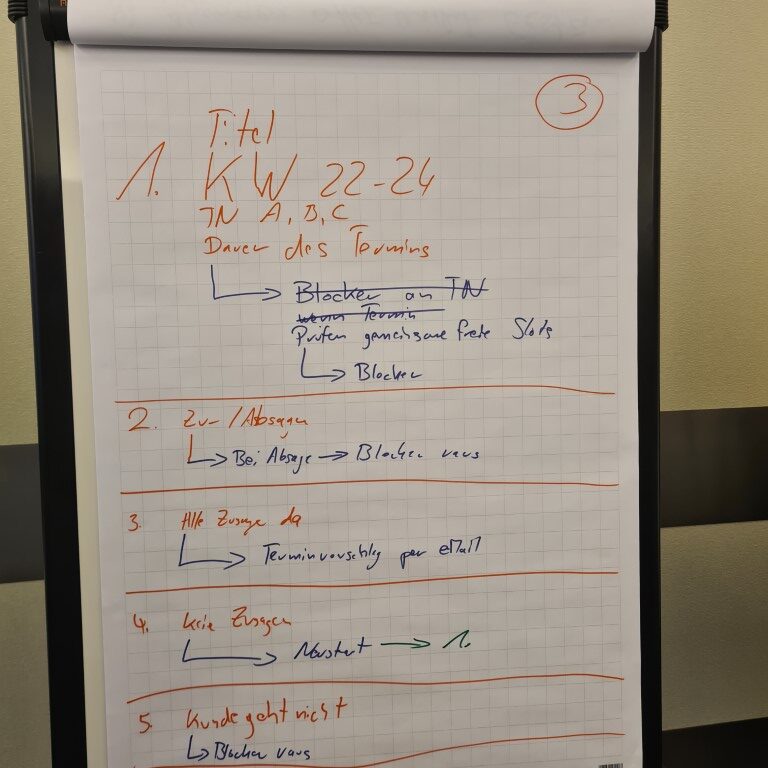 3
Titel
1. KW 22-24
TN A, B, C
Dauer des Termins
Blocker an TN
wenn Termin
Prüfen gemeinsame freie Slots
Blocker
2. Zu- / Absagen
Bei Absage → Blocker raus
3. Alle Zusage da
Terminvorschlag per eMail
4. keie Zusagen
Neustart → 1.
5. Kunde geht nicht
Blocker raus